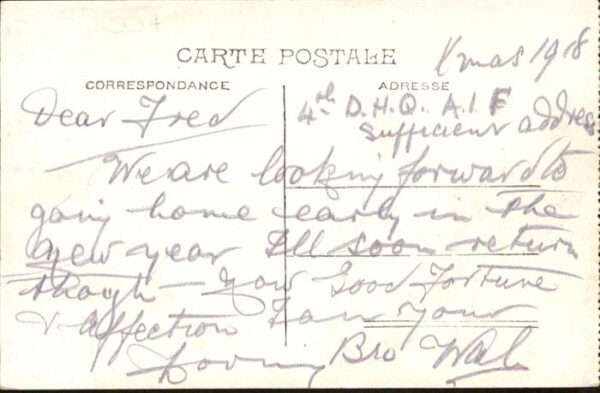 Xmas 1918
CARTE POSTALE
CORRESPONDANCE
ADRESSE
4th D.H.Q. A.I.F
Sufficient address
Dear Fred
We are looking forward to
going home early in the
New year I'll soon return
though - your Good Fortune
& affection I am your
Loving Bro Wal